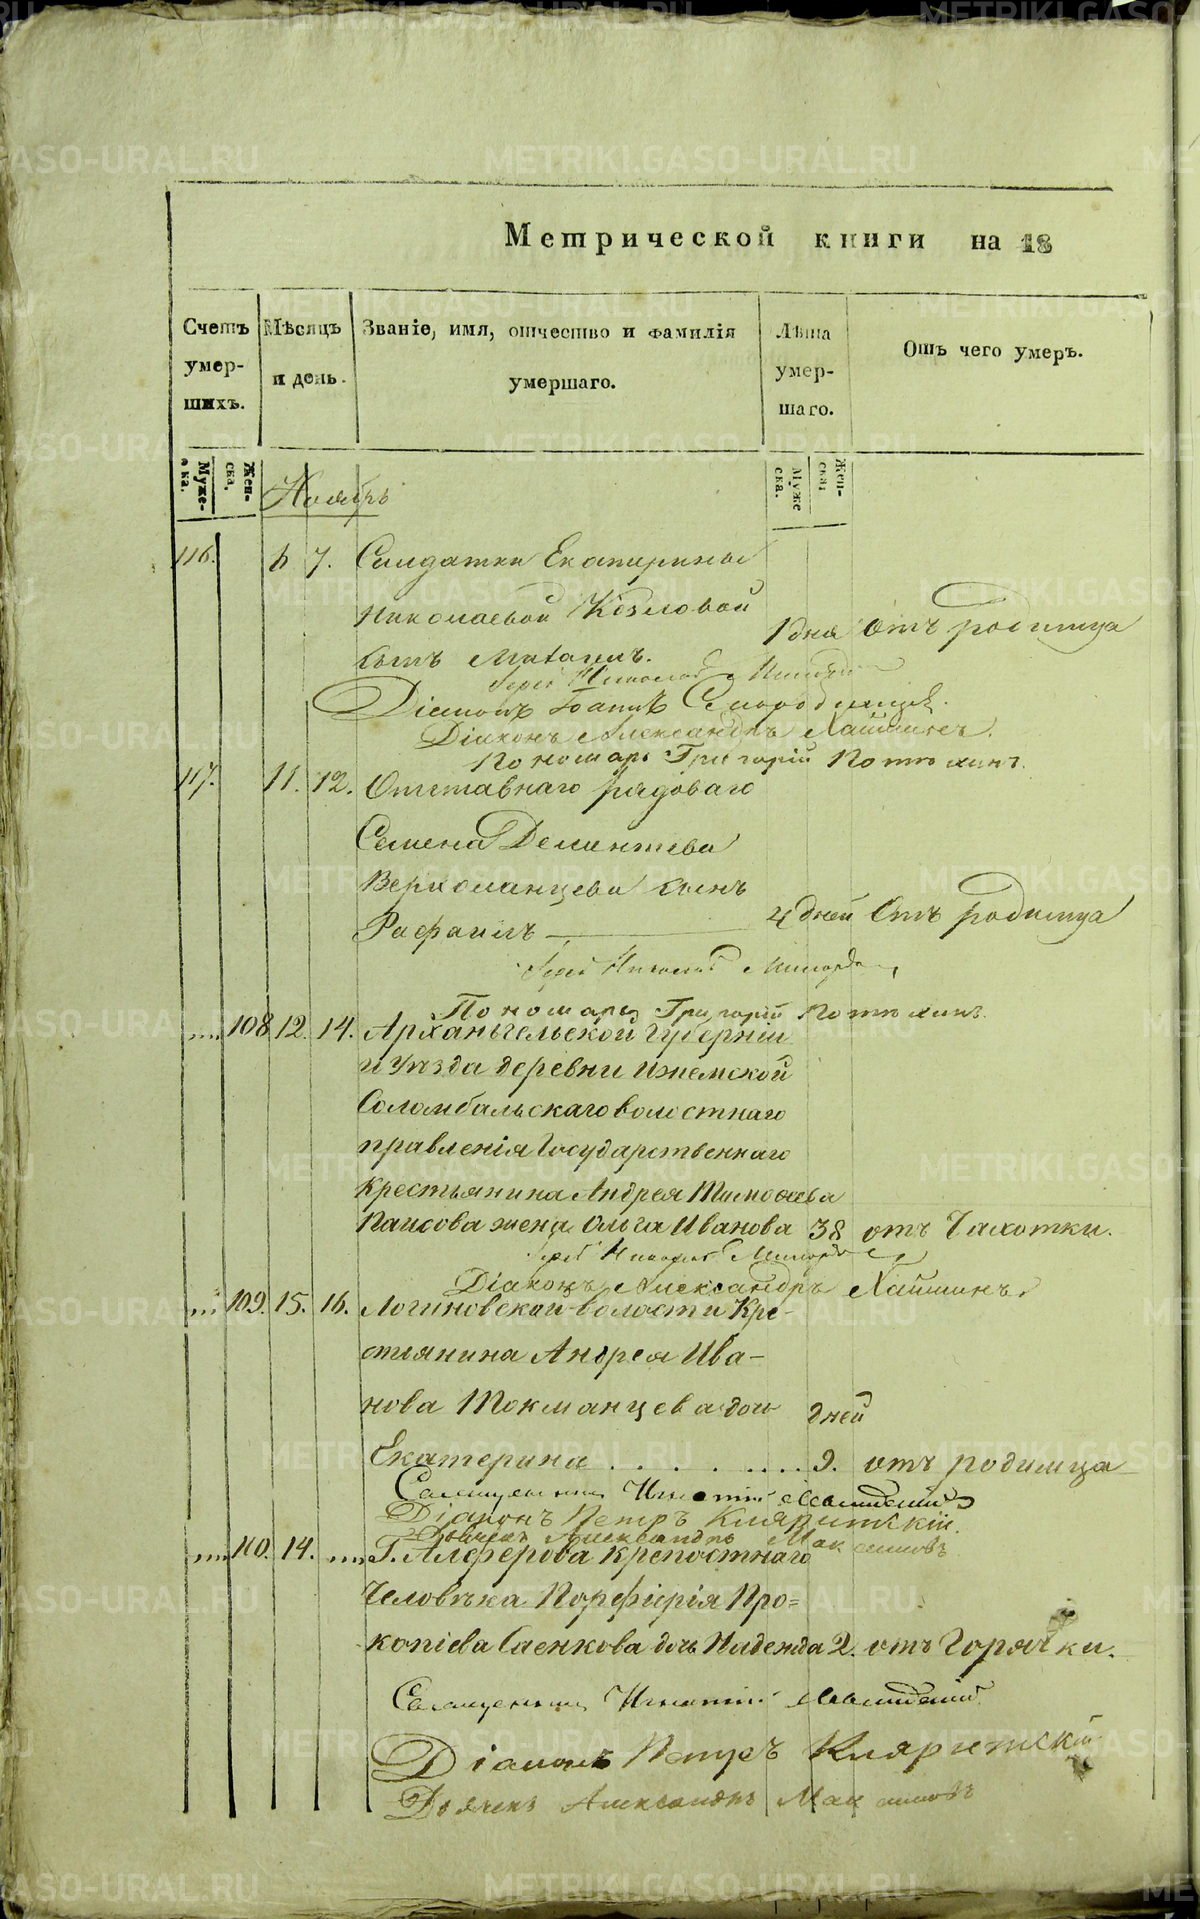 Метрической книги на 18
Счетъ умершихъ.
Мѣсяцъ и день.
Званіе, имя, отчество и фамилія умершаго.
Лѣта умершаго.
Отъ чего умеръ.
Мужеска.
Женска.
Мужеска.
Женска.
Ноябрь
116. 6 7. Салдатки Екатерины
Николаевой Козловой
сынъ 1 дня Отъ родимца
Іерей Николай
Діаконъ Іоаннъ
Діаконъ Александръ Хайминъ.
Пономарь Григорій
117. 11. 12. Отставнаго рядоваго
Семена Дементьева
Верхоланцева сынъ
Рафаилъ 4 дней Отъ родимца
Іерей Николай
Пономарь Григорій
.... 108 12. 14. Архангельской Губерніи
и Уѣзда деревни Ижемской
Соломбальскаго волостнаго
правленія Государственнаго
крестьянина Андрея Тимофеева
жена Ольга Иванова 38 отъ Чахотки.
Іерей Николай
Діаконъ Александръ Хайминъ.
.... 109. 15. 16. Логиновской волости Кре-
стьянина Андрея Ива-
нова Токманцева дочь дней
Екатерина . . . . . . . . 9. отъ родимца
Священникъ Игнатій
Діаконъ Петръ
Дьячекъ Александръ Максимовъ
.... 110. 14. .... Г. Алферова крепостнаго
Человѣка Порфирія Про=
копіева Саенкова дочь Надежда 2. отъ Горячки.
Священникъ Игнатій
Діаконъ Петръ
Дьячекъ Александръ Максимовъ
METRIKI.GASO-URAL.RU